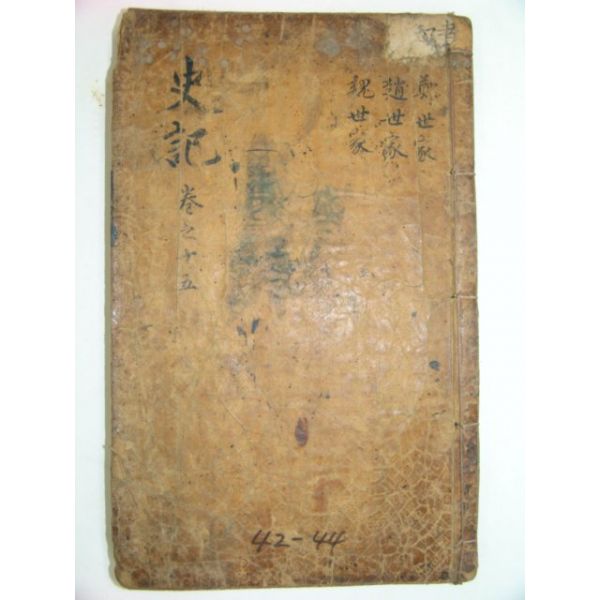 鄭世家
趙世家
魏世家
史記
卷之十五
42-44